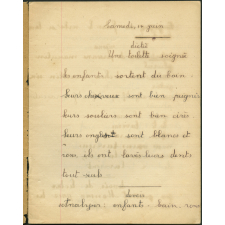 Samedi, 14 juin
dictée
Une toilette soignée
les enfants sortent du bain
leurs cheveux sont bien peignés
leurs souliers sont bien cirés
leurs ongles sont blancs et
ils ont lavés leurs dents
tout seuls
devoir
analyser: enfants. bain.